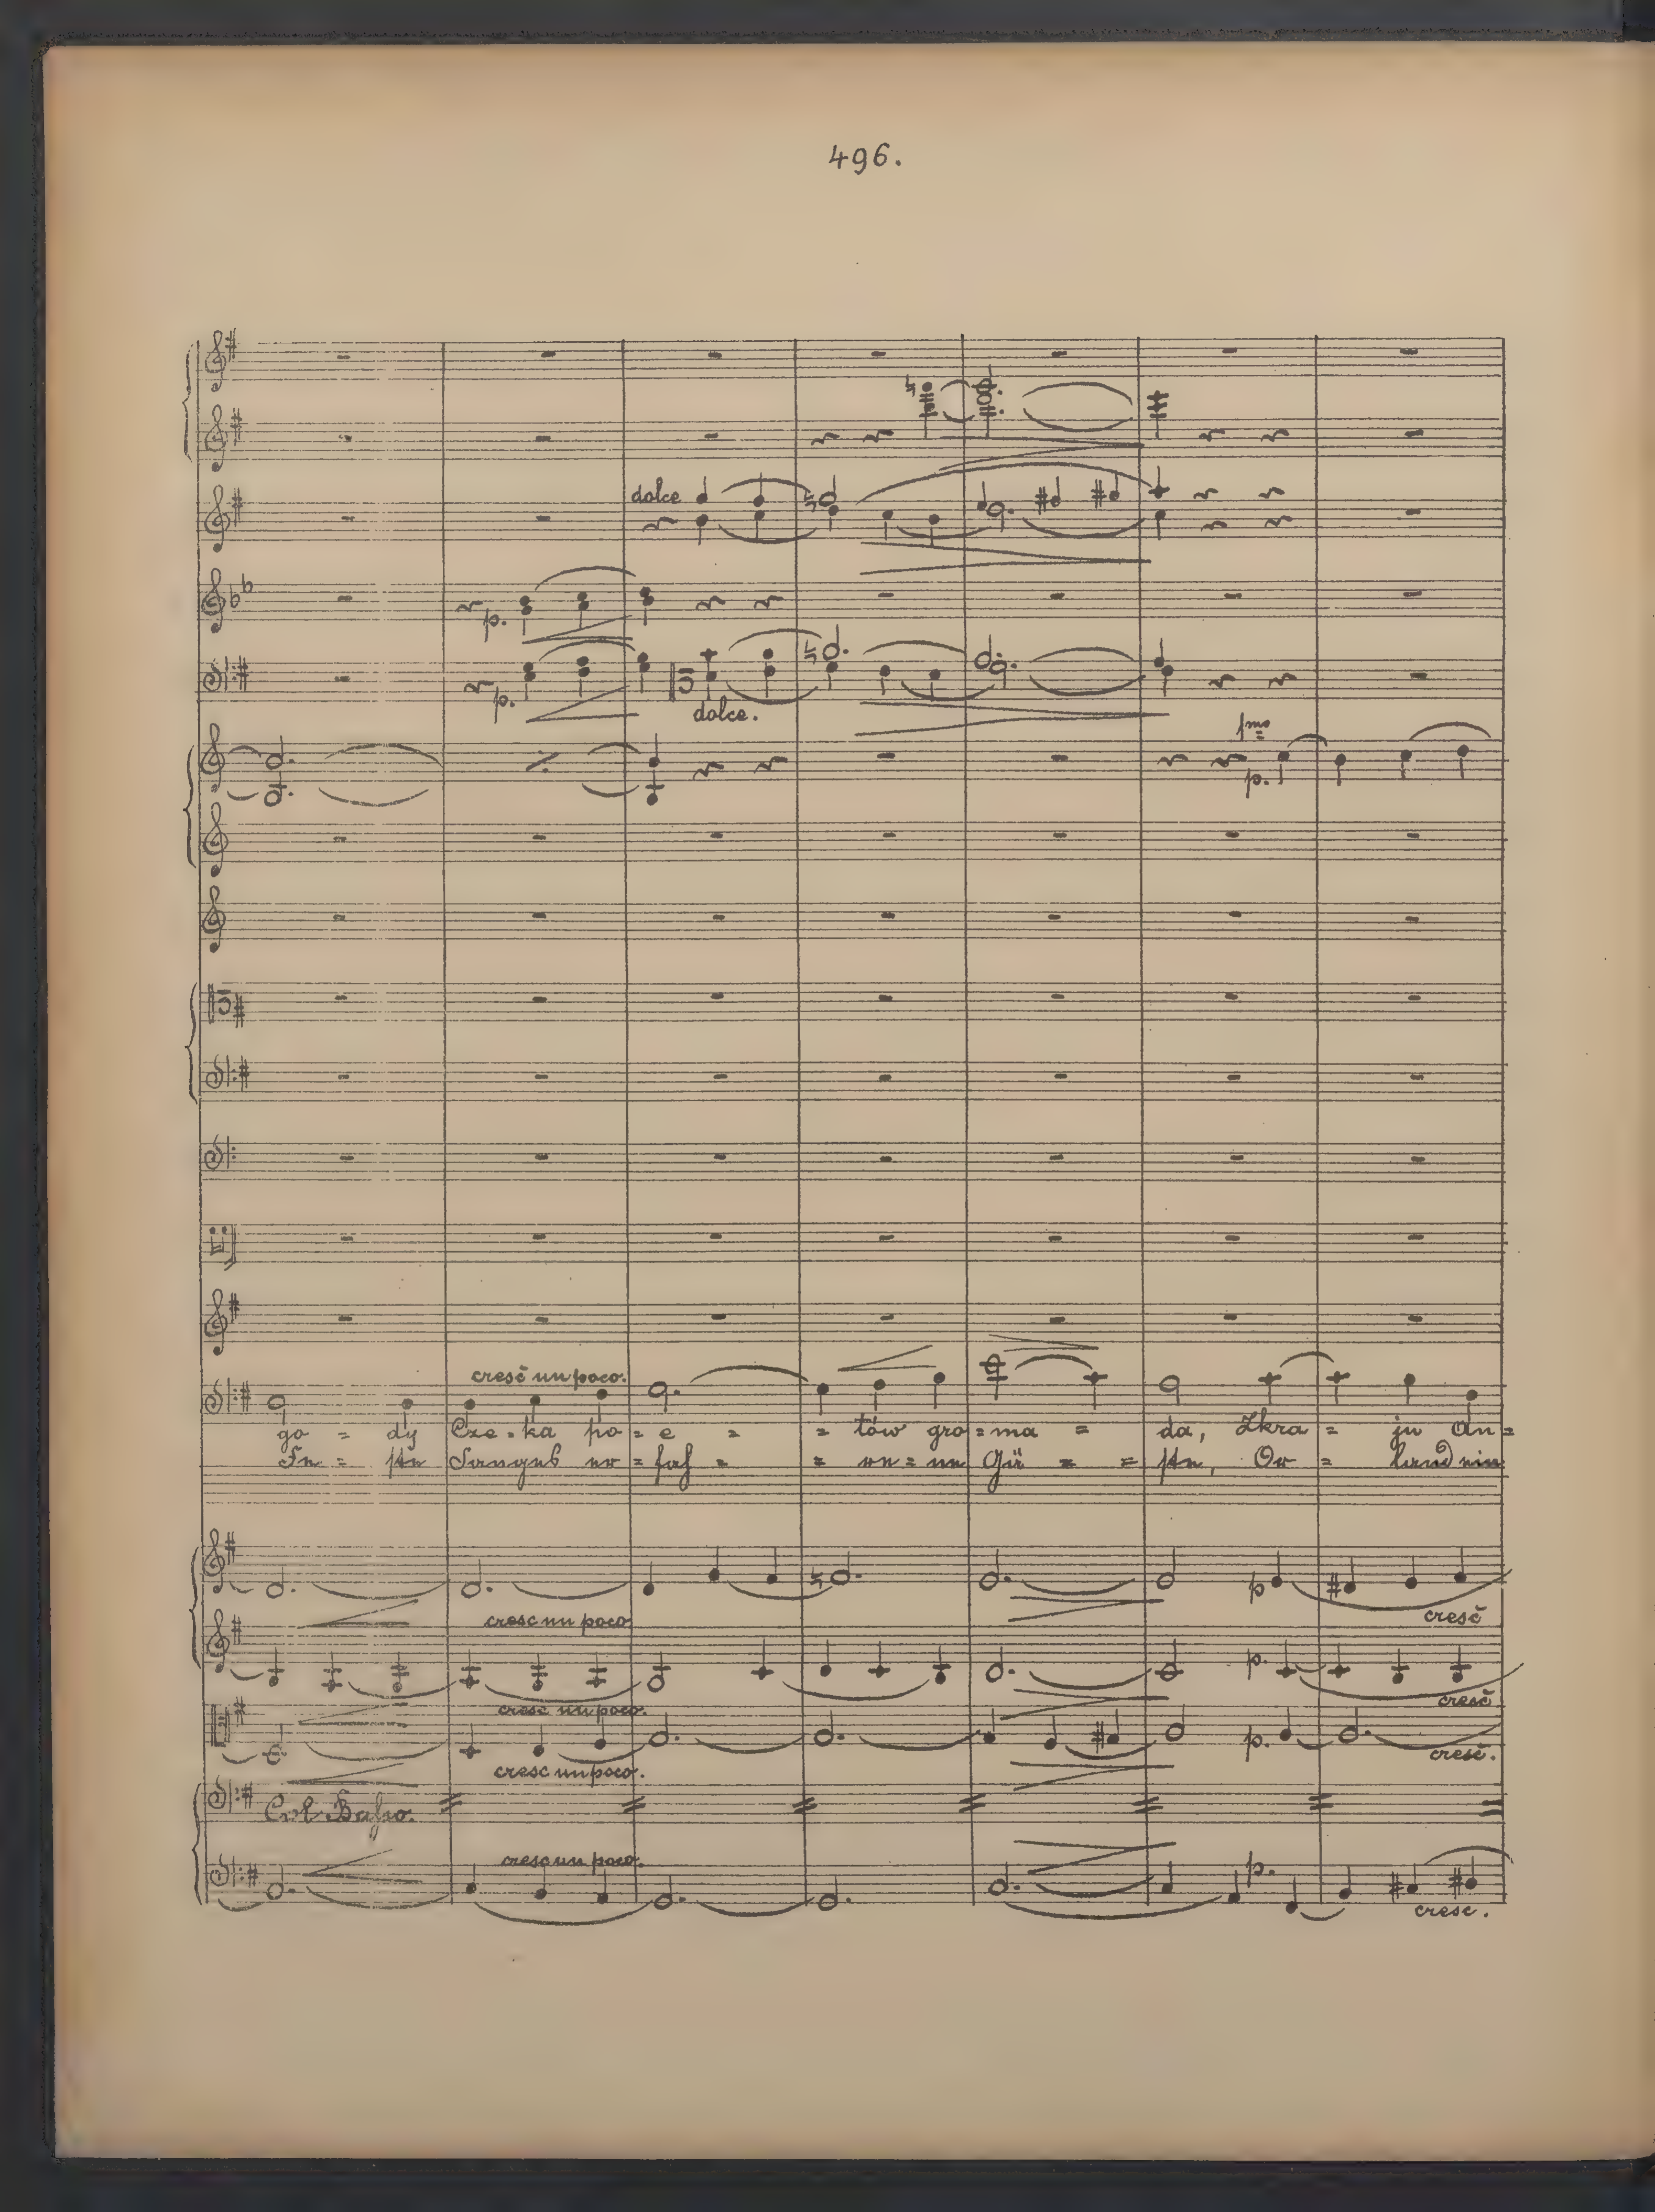 496.
dolce
p.
p.
dolce.
1mo
p.
cresc un poco.
go = dy Cze = ka po = e = = tów gro = ma = da, Zkra = ju An =
Fe = ste Sanges er = = = Gä = = ste, Or = land ein
p
cresc un poco
cresc
p.
cresc un poco.
cresc
p.
cresc un poco.
cresc.
Col Basso.
cresc un poco.
p.
cresc.